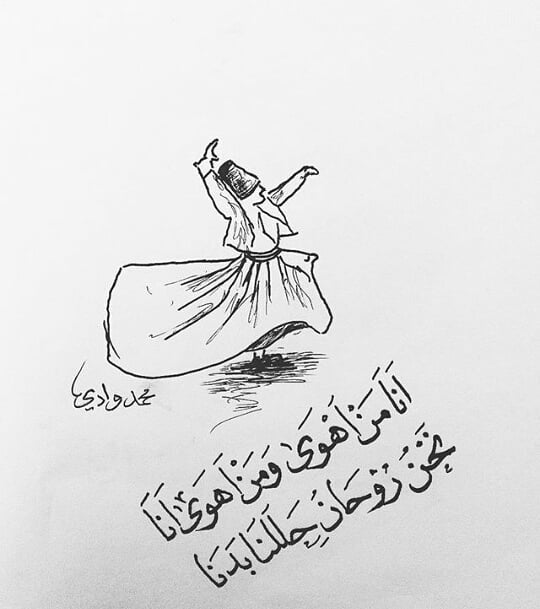 محمد وادي
أَنَا مَنْ أَهْوَى وَمَنْ أَهْوَى أَنَا
نَحْنُ رُوْحَانِ حَلَلْنَا بَدَنَا